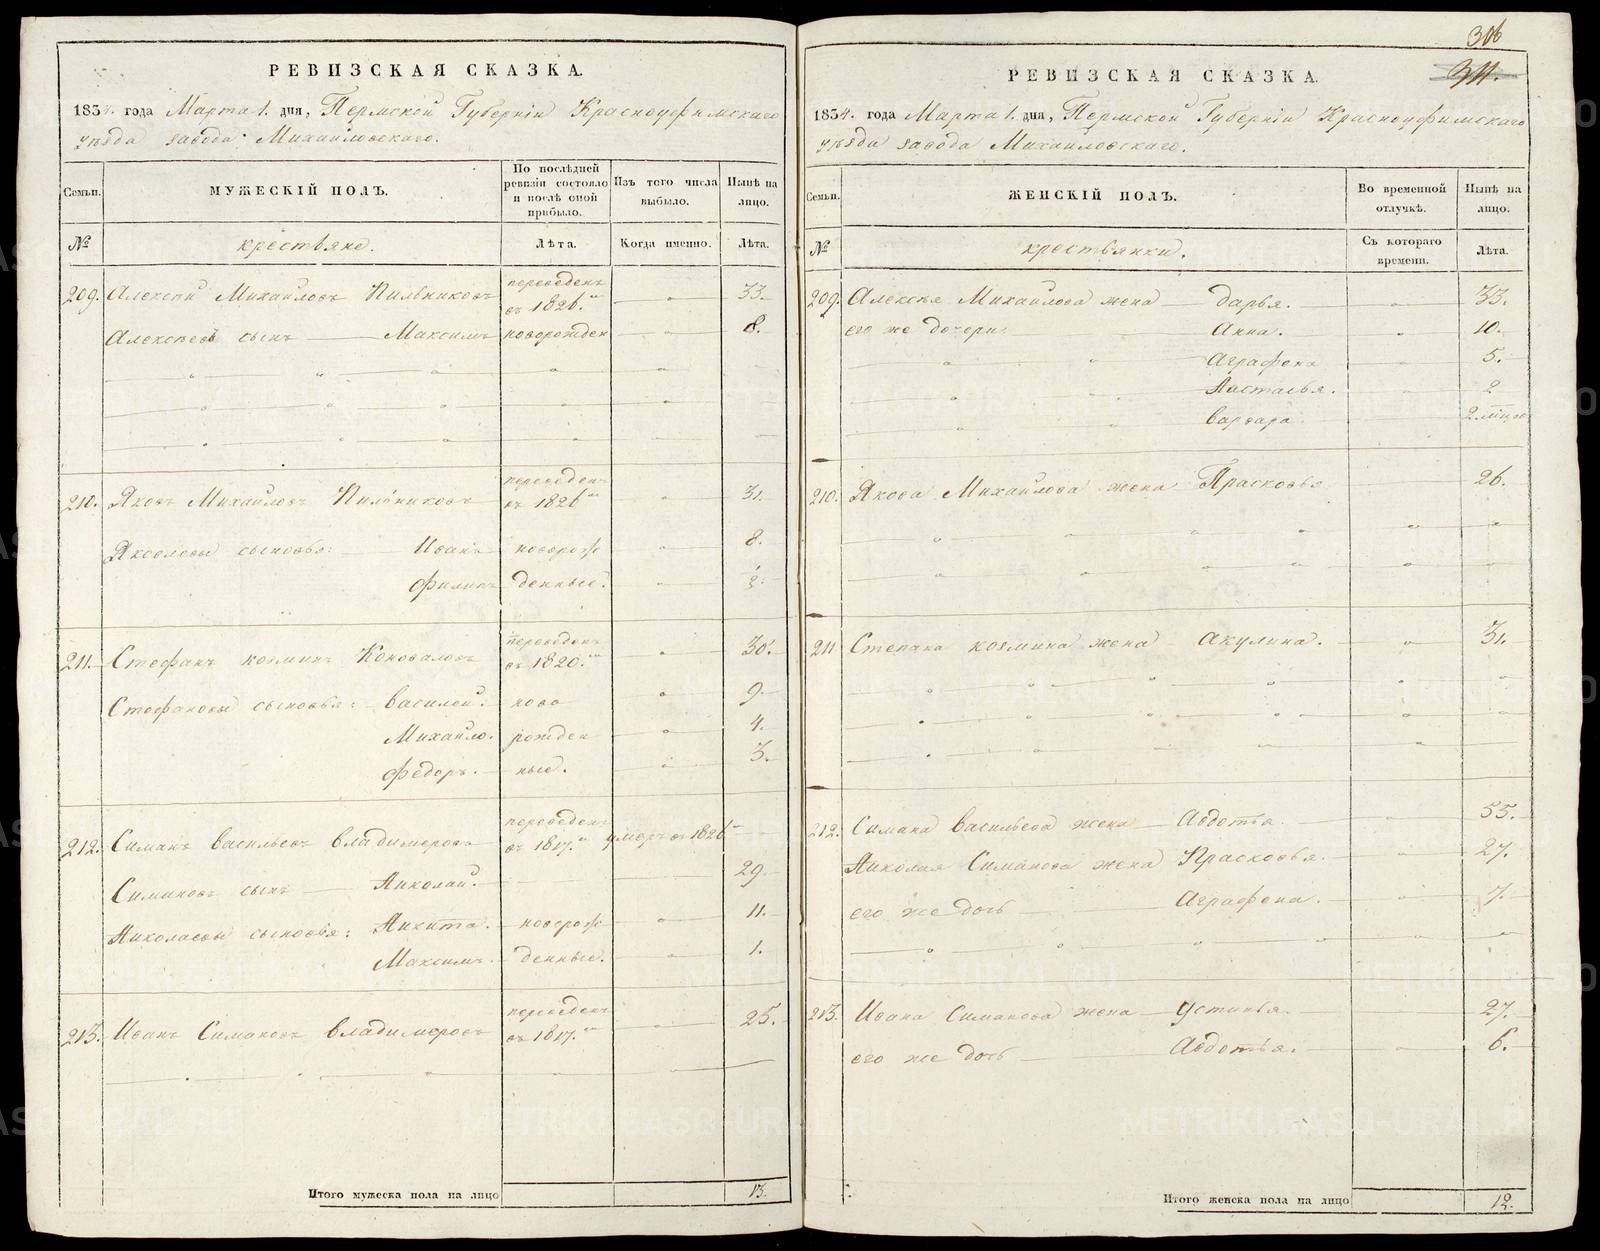 РЕВИЗСКАЯ СКАЗКА.
1834. года Марта 1. дня, Пермской Губерніи Красноуфимскаго
уѣзда завода Михайловскаго.
Семьи.
МУЖЕСКІЙ ПОЛЪ.
По послѣдней ревизіи состояло и послѣ оной прибыло.
Изъ того числа выбыло.
Нынѣ на лицо.
№
крестьяне.
Лѣта.
Когда именно.
Лѣта.
209. Алексѣй Михайловъ Пильниковъ переведенъ въ 1826.мъ 33.
Алексѣевъ сынъ Максимъ новорожден 8.
210. Яковъ Михайловъ Пильниковъ переведенъ въ 1826мъ 31.
Яковлевы сыновья: Иванъ новорож 8.
Филипъ денные.
211. Стефанъ Козминъ Коноваловъ переведенъ въ 1820.мъ 30.
Стефановы сыновья: Василей. ново 9.
Михайло. рожден 4.
Федоръ. ные. 3.
212. Симанъ Васильевъ Владимеровъ переведенъ въ 1817.мъ умеръ въ 1826
Симановъ сынъ Николай. 29
Николаевы сыновья: Никита. новорож 11.
Максимъ. денные. 1.
213. Иванъ Симановъ Владимеровъ переведенъ въ 1817.мъ 25.
Итого мужеска пола на лицо 13.
306
311.
РЕВИЗСКАЯ СКАЗКА.
1834. года Марта 1. дня, Пермской Губерніи Красноуфимскаго
уѣзда завода Михайловскаго.
Семьи.
ЖЕНСКІЙ ПОЛЪ.
Во временной отлучкѣ.
Нынѣ на лицо.
№
крестьянки.
Съ котораго времени.
Лѣта.
209. Алексѣя Михайлова жена Дарья. 33.
его же дочери: Анна. 10.
Аграфена 5.
Настасья. 2
Варвара 2 мѣц
210. Якова Михайлова жена Прасковья 26.
211 Степана Козмина жена Акулина. 31.
212. Симана Васильева жена Авдотья 55.
Николая Симанова жена Прасковья. 27.
его же дочь Аграфена. 7.
213. Ивана Симанова жена Устинья 27.
его же дочь Авдотья. 6.
Итого женска пола на лицо 12.
METRIKI.GASO-URAL.RU